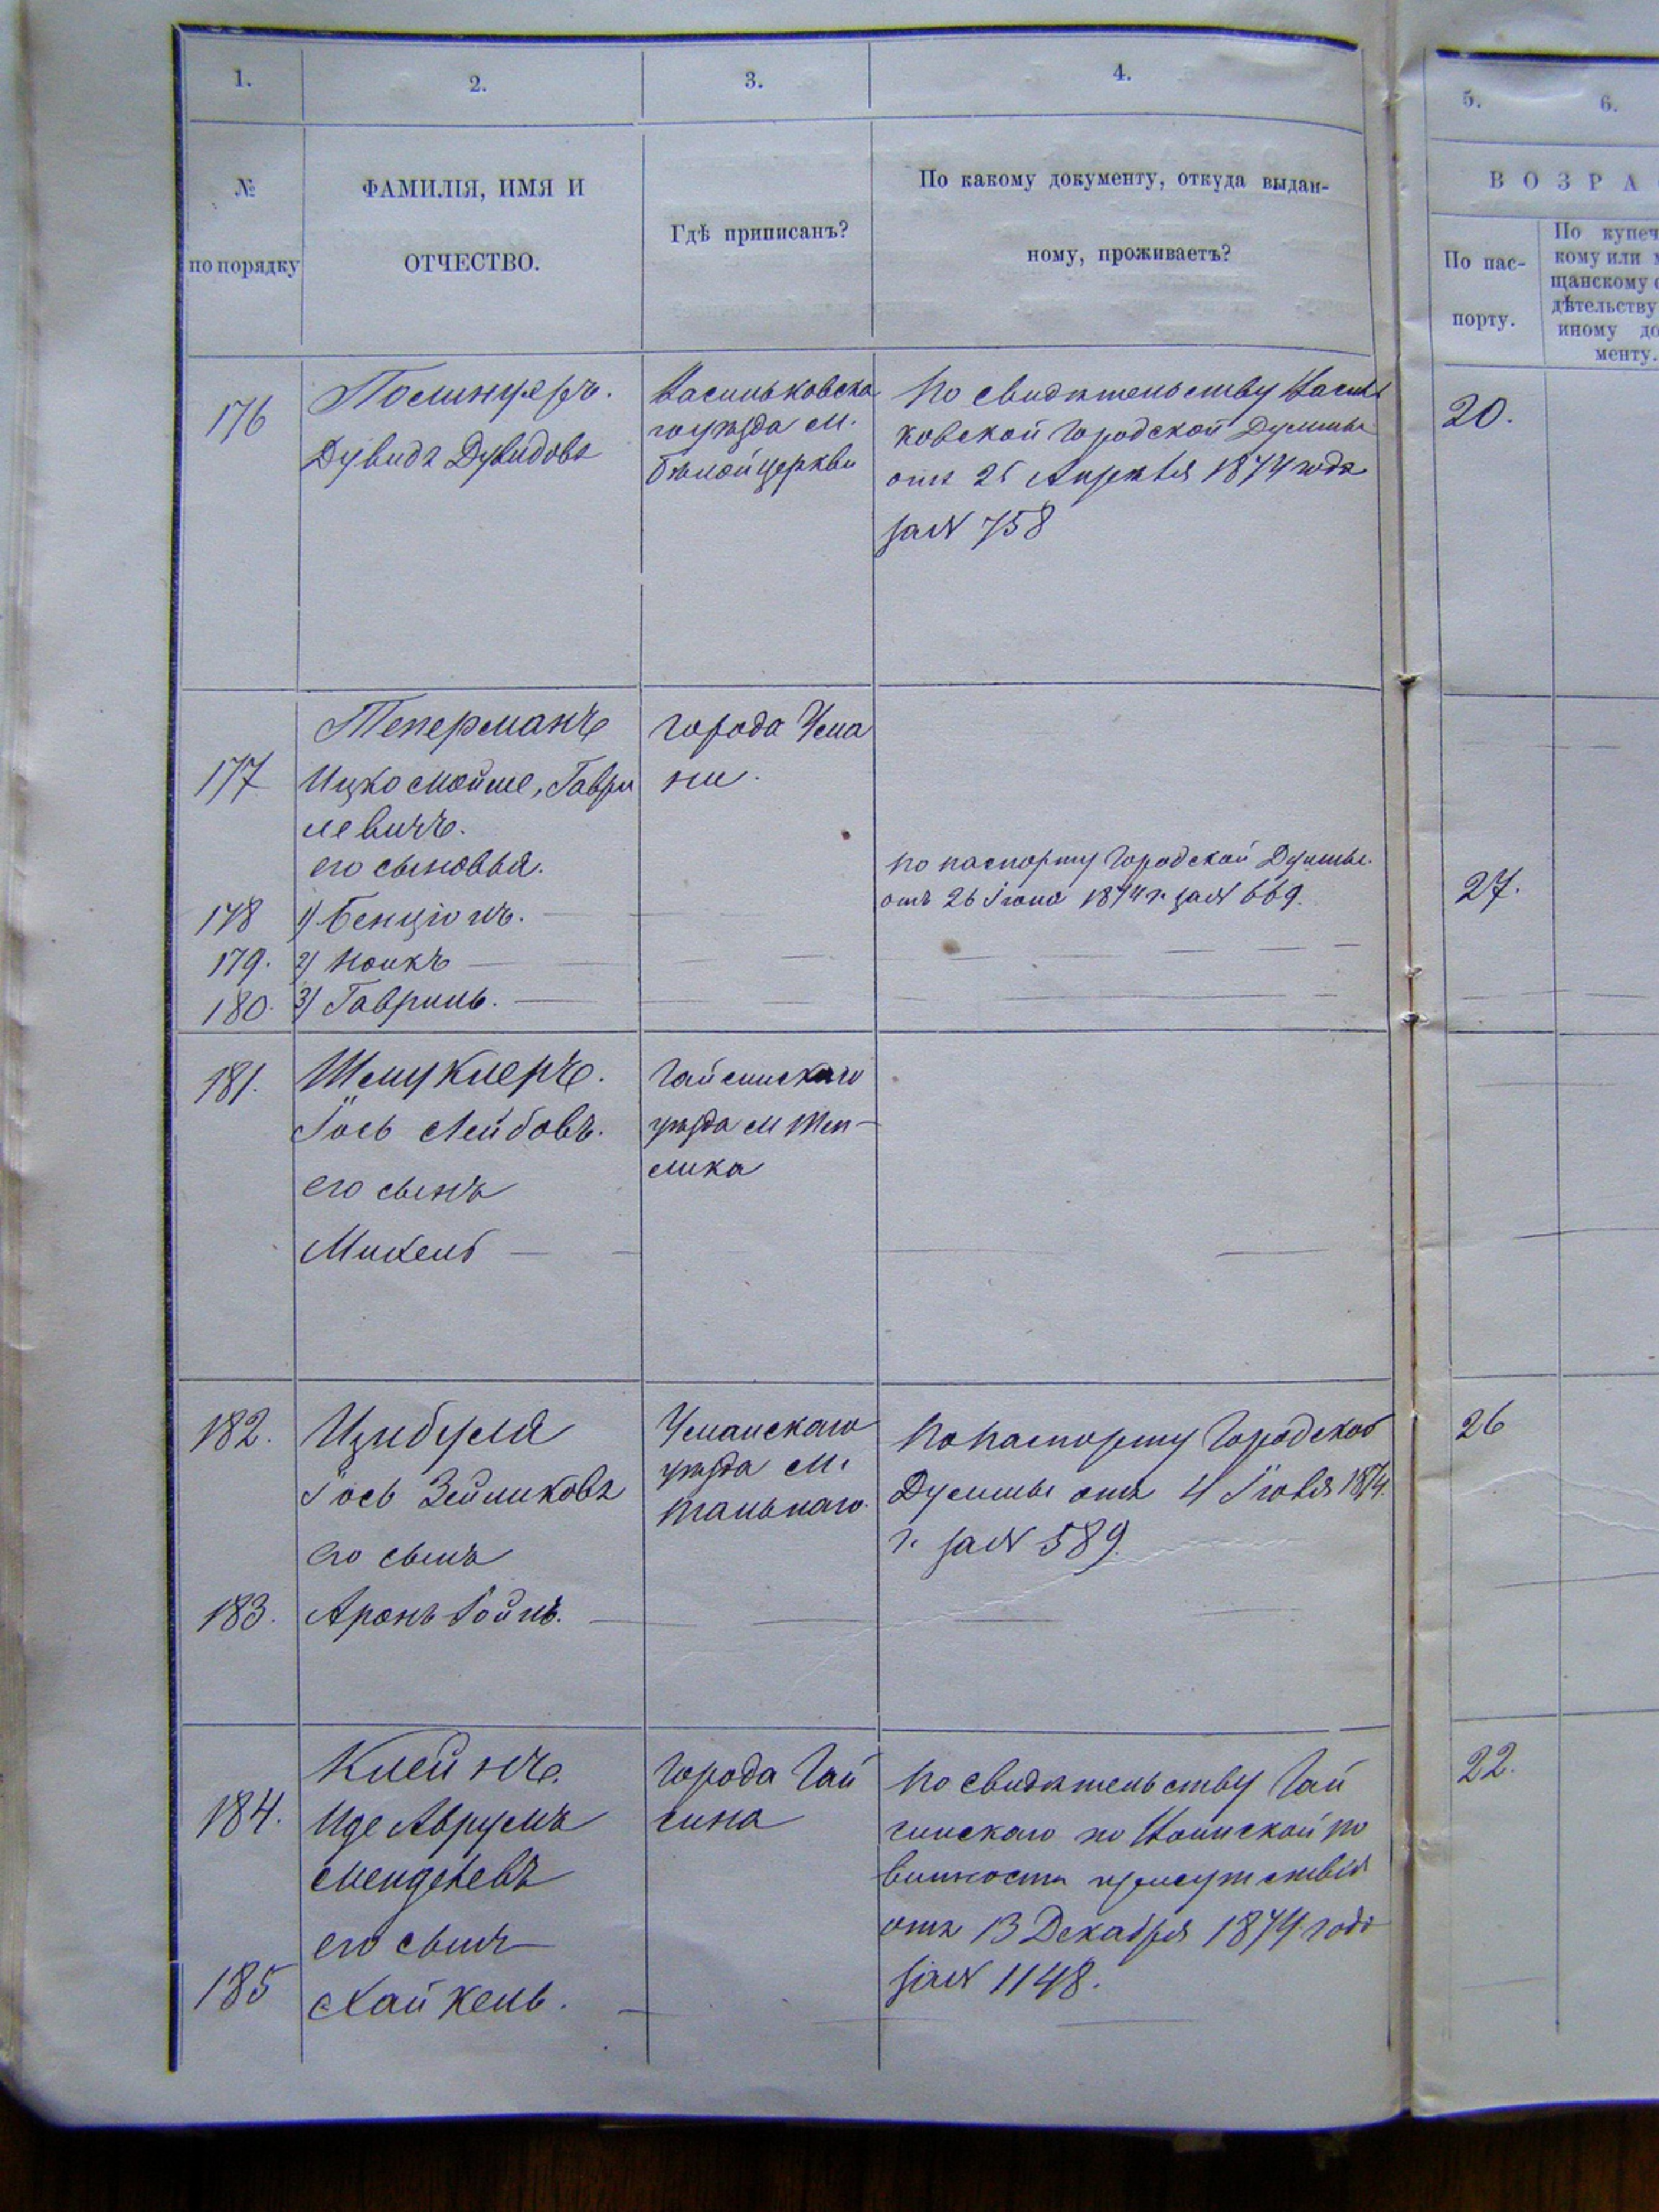 1.
2.
3.
4.
5.
6.
№
по порядку
ФАМИЛІЯ, ИМЯ И
ОТЧЕСТВО.
Гдѣ приписанъ?
По какому документу, откуда выдан-
ному, проживаетъ?
ВОЗРА
По пас-
порту.
По купеч
кому или
щанскому
дѣтельству
иному до
менту.
176
Дувидъ Дувидовъ
Васильковска
го уѣзда м.
бѣлой церкви
По свидѣтельству Василь
ковской Городской Думы
отъ 25 Апрѣля 1874 года
за N 758
20.
Теперманъ
177
Ицко Мойше, Гаври
левичъ.
его сыновья.
178
1) Бенціонъ.
179.
2)
180.
3) Гавриль.
города Ума
ни.
по паспорту Городской Думы.
отъ 26 Іюня 1874 г. за N 669.
27.
181.
Шмуклеръ.
Іось Лейбовъ.
его сынъ
Михель
Гайсинскаго
уѣзда м Теп-
лика
182.
Цибуля
Іось Зейликовъ
его сынъ
183.
Аронъ
Уманскаго
уѣзда м.
Тальнаго
По паспорту Городской
Думы отъ 4 1874.
г. за N 589.
26
Клейнъ.
184.
Иде Аврумъ
Менделевъ
его сынъ
185
Хайкель.
Города Гай
сина
По свидѣтельству Гай
синскаго по Воинской по
винности присутствія
отъ 13 Декабря 1874 года
за N 1148.
22.